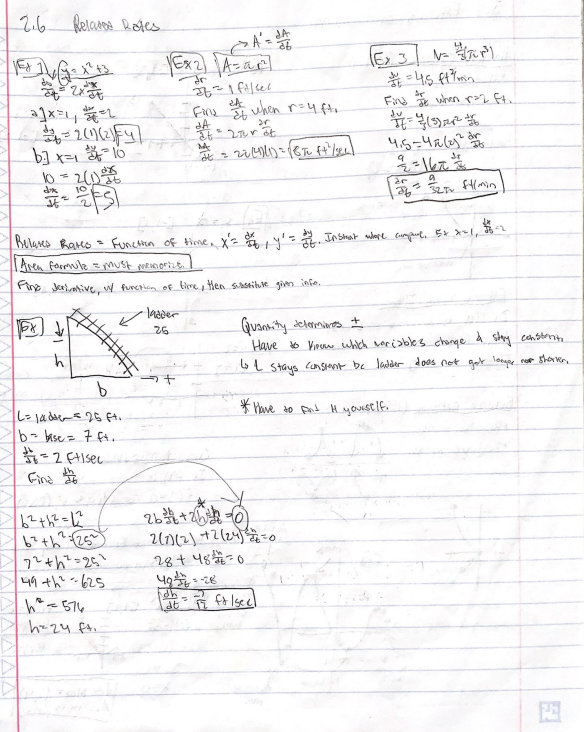 2.6 Related Rates
Ex 1 y = x² + 3
dy/dt = 2x dx/dt
a.] x=1, dx/dt = 2
dy/dt = 2(1)(2) = 4
b.] x=1 dy/dt = 10
10 = 2(1) dx/dt
dx/dt = 10/2 = 5
Ex 2 A = πr² → A' = dA/dt
dr/dt = 1 ft/sec
Find dA/dt when r = 4 ft.
dA/dt = 2πr dr/dt
dA/dt = 2π(4)(1) = 8π ft²/sec
Ex 3 V = 4/3 πr³
dv/dt = 4.5 ft³/min
Find dr/dt when r = 2 ft.
dv/dt = 4/3(3)πr² dr/dt
4.5 = 4π(2)² dr/dt
9/2 = 16π dr/dt
dr/dt = 9/32π ft/min
Related Rates = Function of time. x' = dx/dt, y' = dy/dt. Ex x=1, dx/dt = 2
Area formula = must memorize.
Find derivative, w/ function of time, then substitute given info.
Ex
ladder
25
h
b → +
Quantity determines ±
Have to know which variables change & stay constant.
↳ L stays constant bc ladder does not get longer nor shorter.
* Have to find H yourself.
L = ladder = 25 ft.
b = base = 7 ft.
db/dt = 2 ft/sec
Find dh/dt
b² + h² = L²
b² + h² = 25²
7² + h² = 25²
49 + h² = 625
h² = 576
h = 24 ft.
*
2b db/dt + 2h dh/dt = 0
2(7)(2) + 2(24) dh/dt = 0
28 + 48 dh/dt = 0
48 dh/dt = -28
dh/dt = -7/12 ft/sec